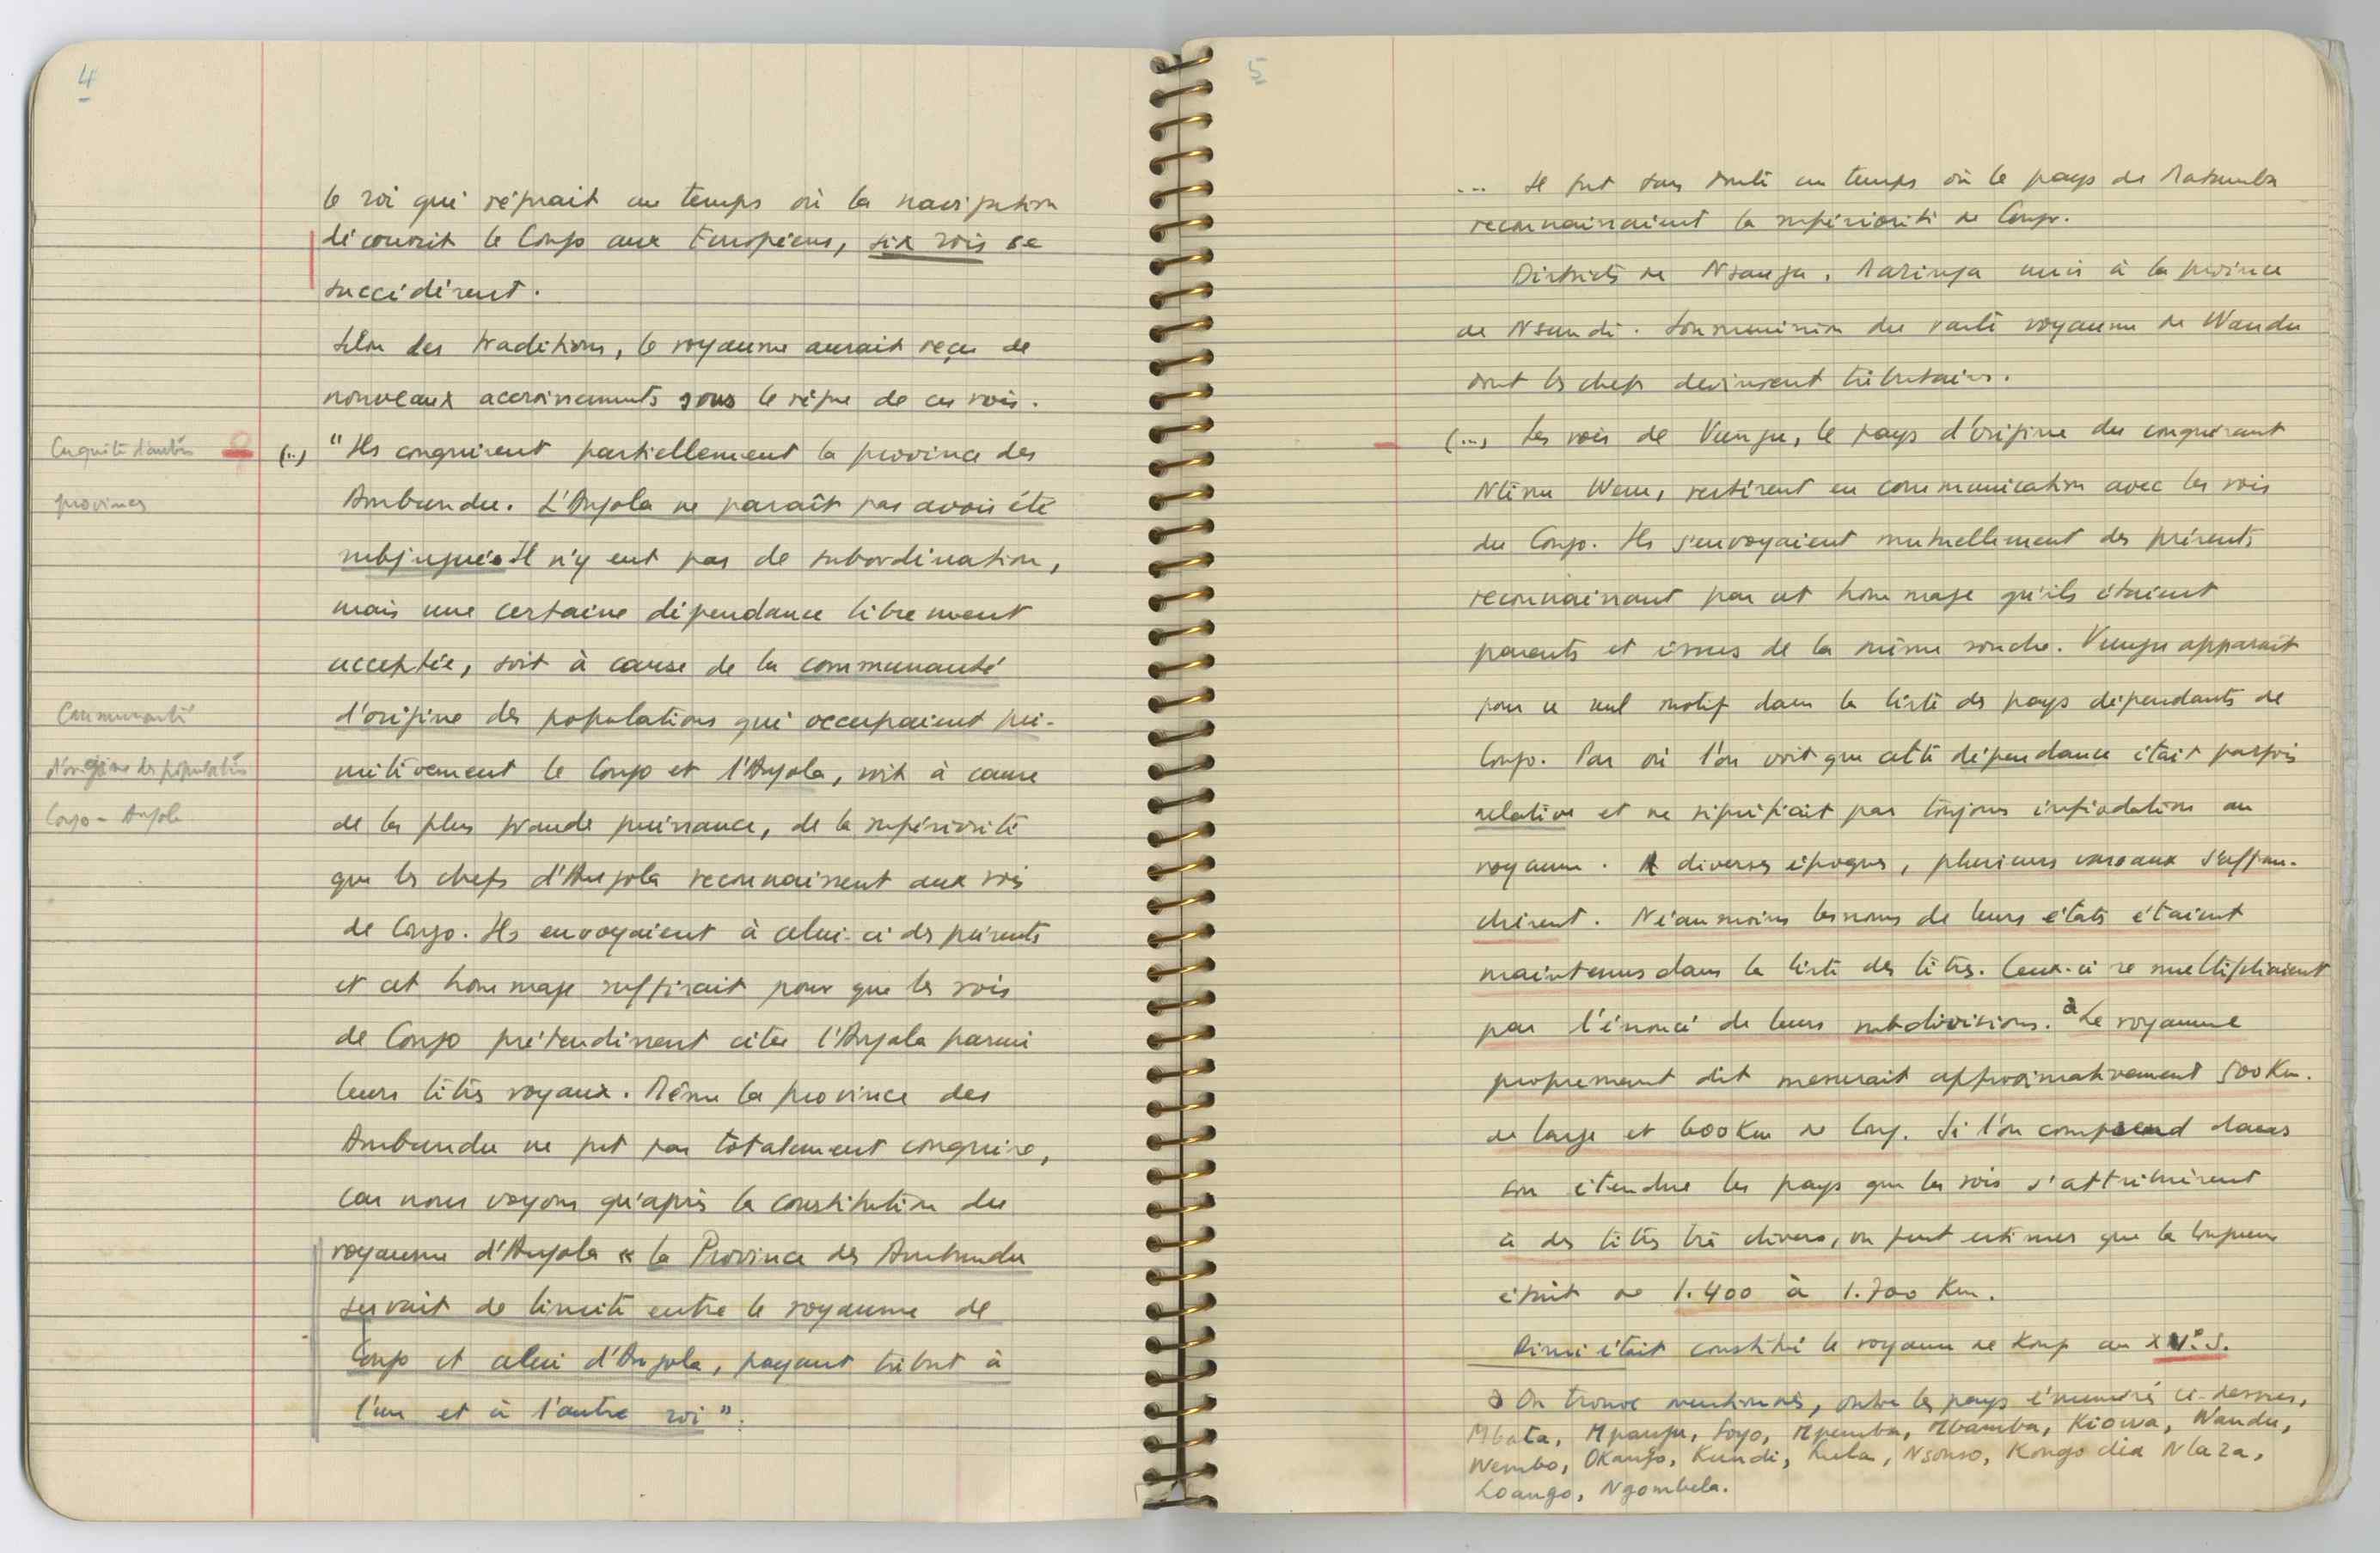 4
le roi qui régnait au temps où la navigation
découvrit le Congo aux Européens, six rois se
succédèrent.
Selon des traditions, le royaume aurait reçu de
nouveaux accroissements sous le règne de ces rois.
Conquête d'autres
(..) "Ils conquirent partiellement la province des
provinces
Ambundu. L'Angola ne paraît pas avoir été
subjuguée. Il n'y eut pas de subordination,
mais une certaine dépendance librement
acceptée, soit à cause de la communauté
Communauté
d'origine des populations qui occupaient pri-
d'origine des populations
mitivement le Congo et l'Angola, soit à cause
Congo - Angola
de la plus grande puissance, de la supériorité
que les chefs d'Angola reconnaissent aux rois
de Congo. Ils envoyaient à celui-ci des présents
et cet hommage suffisait pour que les rois
de Congo prétendissent citer l'Angola parmi
leurs titres royaux. Même la province des
Ambundu ne fut pas totalement conquise,
car nous voyons qu'après la constitution du
royaume d'Angola « la Province des Ambundu
servait de limite entre le royaume de
Congo et celui d'Angola, payant tribut à
l'un et à l'autre roi".
5
... Il fut sans doute un temps où le pays de Matamba
reconnaissaient la supériorité de Congo.
Districts de Nsanga, Masinga unis à la province
de Nsundi. Soumission du vaste royaume de Wandu
dont les chefs devinrent tributaires.
(...) Les rois de Vungu, le pays d'origine du conquérant
Ntinu Wenu, restèrent en communication avec les rois
du Congo. Ils s'envoyaient mutuellement des présents
reconnaissant par cet hommage qu'ils étaient
parents et issus de la même souche. Vungu apparait
pour ce seul motif dans la liste des pays dépendants de
Congo. Par où l'on voit que cette dépendance était parfois
relative et ne signifiait pas toujours inféodation au
royaume. A diverses époques, plusieurs vassaux s'affran-
chirent. Néanmoins les noms de leurs états étaient
maintenus dans la liste des titres. Ceux-ci se multipliaient
par l'énoncé de leurs subdivisions. a Le royaume
proprement dit mesurait approximativement 500 Km.
de large et 600 Km de long. Si l'on comprend dans
son étendue les pays que les rois s'attribuèrent
à des titres très divers, on peut estimer que la longueur
était de 1.400 à 1.700 Km.
Ainsi était constitué le royaume de Kongo au XVe.S.
a On trouve mentionnés, outre les pays énumérés ci-dessus,
Mbata, Mpangu, Soyo, Mpemba, Mbamba, Kiowa, Wandu,
Wembo, Okango, Kundi, Kula, Nsonso, Kongo dia Nlaza,
Loango, Ngombela.